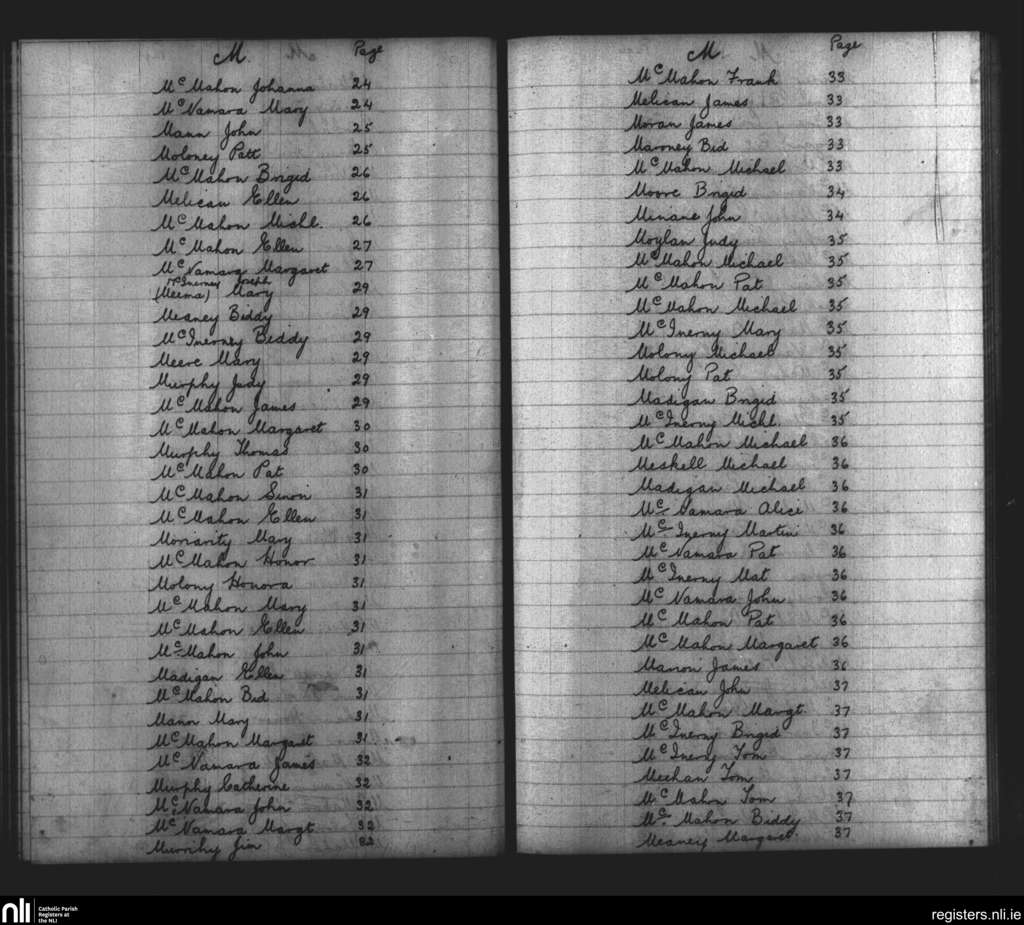 M. Page
McMahon Johanna 24
McNamara Mary 24
Mann John 25
Moloney Patt 25
McMahon Brigid 26
Melican Ellen 26
McMahon Michl. 26
McMahon Ellen 27
McNamara Margaret 27
McInerney Joseph
(Meema) Mary 29
Meaney Biddy 29
McInerney Biddy 29
Meere Mary 29
Murphy Judy 29
McMahon James 29
McMahon Margaret 30
Murphy Thomas 30
McMahon Pat 30
McMahon Simon 31
McMahon Ellen 31
Moriarity Mary 31
McMahon Honor 31
Molony Honora 31
McMahon Mary 31
McMahon Ellen 31
McMahon John 31
Madigan Ellen 31
McMahon Bid 31
Mann Mary 31
McMahon Margaret 31
McNamara James 32
Murphy Catherine 32
McNamara John 32
McNamara Margt 32
Murrihy Jim 32
M. Page
McMahon Frank 33
Melican James 33
Moran James 33
Maroney Bid 33
McMahon Michael 33
Moore Brigid 34
Minane John 34
Moylan Judy 35
McMahon Michael 35
McMahon Pat 35
McMahon Michael 35
McInerny Mary 35
Molony Michael 35
Molony Pat 35
Madigan Brigid 35
McInerny Michl. 35
McMahon Michael 36
Meskell Michael 36
Madigan Michael 36
McNamara Alice 36
McInerny Martin 36
McNamara Pat 36
McInerny Mat 36
McNamara John 36
McMahon Pat 36
McMahon Margaret 36
Marron James 36
Melican John 37
McMahon Margt. 37
McInerny Brigid 37
McInerny Tom 37
Meehan Tom 37
McMahon Tom 37
McMahon Biddy 37
Meaney Margaret 37
nli Catholic Parish
Registers at
the NLI
registers.nli.ie